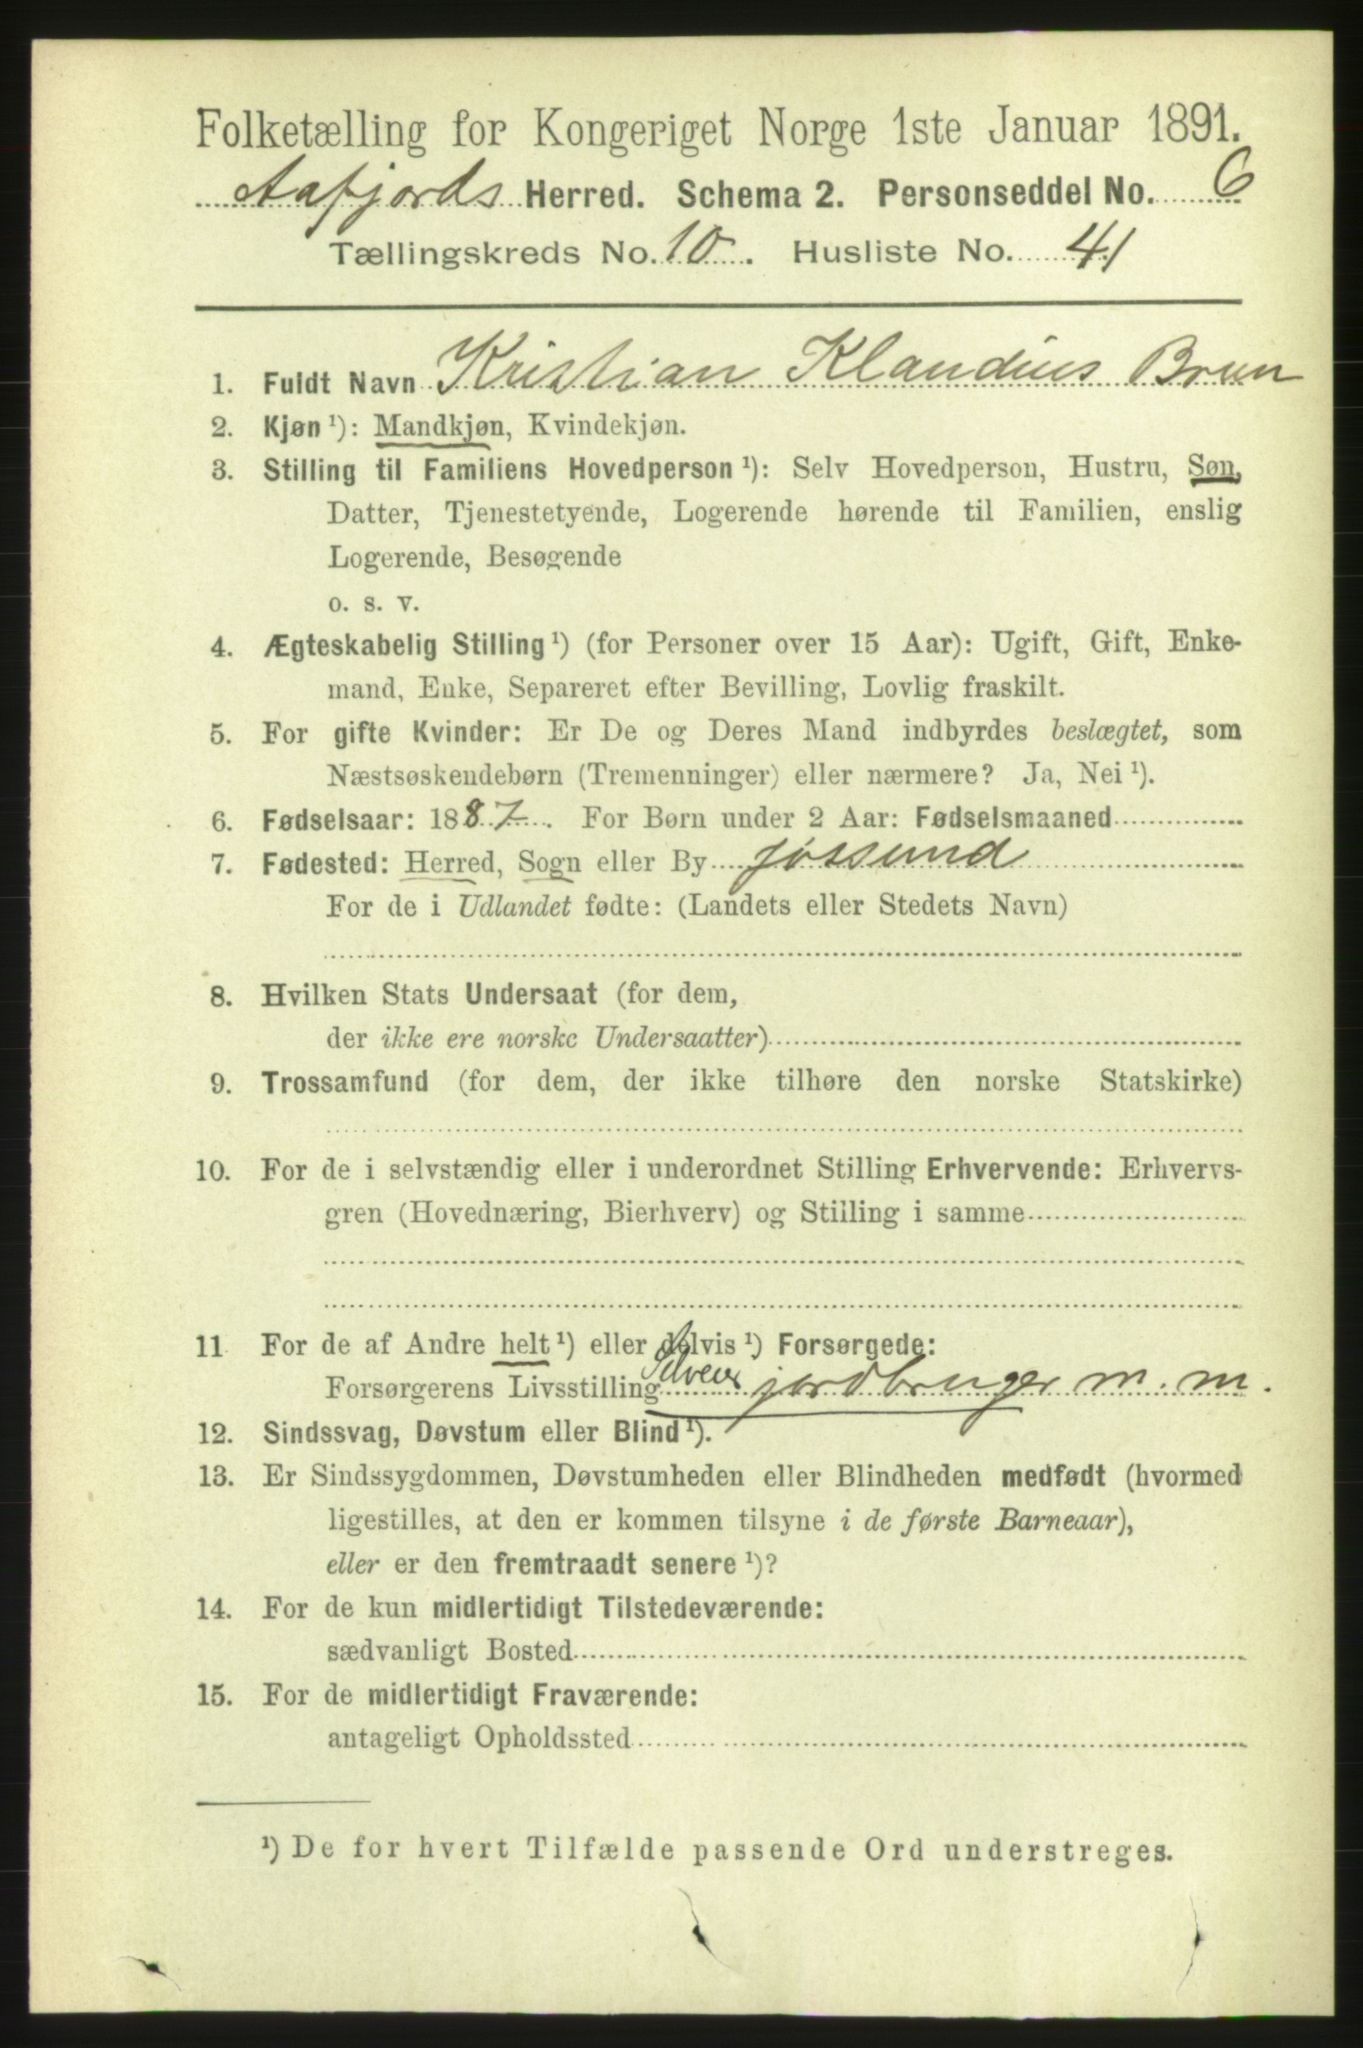 Folketælling for Kongeriget Norge 1ste Januar 1891.
Aafjords Herred. Schema 2. Personseddel No. 6
Tællingskreds No. 10. Husliste No. 41
1. Fuldt Navn Kristian Klaudius Brun
2. Kjøn ¹): Mandkjøn, Kvindekjøn.
3. Stilling til Familiens Hovedperson ¹): Selv Hovedperson, Hustru, Søn,
Datter, Tjenestetyende, Logerende hørende til Familien, enslig
Logerende, Besøgende
o. s. v.
4. Ægteskabelig Stilling ¹) (for Personer over 15 Aar): Ugift, Gift, Enke-
mand, Enke, Separeret efter Bevilling, Lovlig fraskilt.
5. For gifte Kvinder: Er De og Deres Mand indbyrdes beslægtet, som
Næstsøskendebørn (Tremenninger) eller nærmere? Ja, Nei ¹).
6. Fødselsaar: 1887. For Børn under 2 Aar: Fødselsmaaned
7. Fødested: Herred, Sogn eller By Jøssund
For de i Udlandet fødte: (Landets eller Stedets Navn)
8. Hvilken Stats Undersaat (for dem,
der ikke ere norske Undersaatter)
9. Trossamfund (for dem, der ikke tilhøre den norske Statskirke)
10. For de i selvstændig eller i underordnet Stilling Erhvervende: Erhvervs-
gren (Hovednæring, Bierhverv) og Stilling i samme
11 For de af Andre helt ¹) eller delvis ¹) Forsørgede:
Forsørgerens Livsstilling Selveier jordbruger m. m.
12. Sindssvag, Døvstum eller Blind ¹).
13. Er Sindssygdommen, Døvstumheden eller Blindheden medfødt (hvormed
ligestilles, at den er kommen tilsyne i de første Barneaar),
eller er den fremtraadt senere ¹)?
14. For de kun midlertidigt Tilstedeværende:
sædvanligt Bosted
15. For de midlertidigt Fraværende:
antageligt Opholdssted
¹) De for hvert Tilfælde passende Ord understreges.